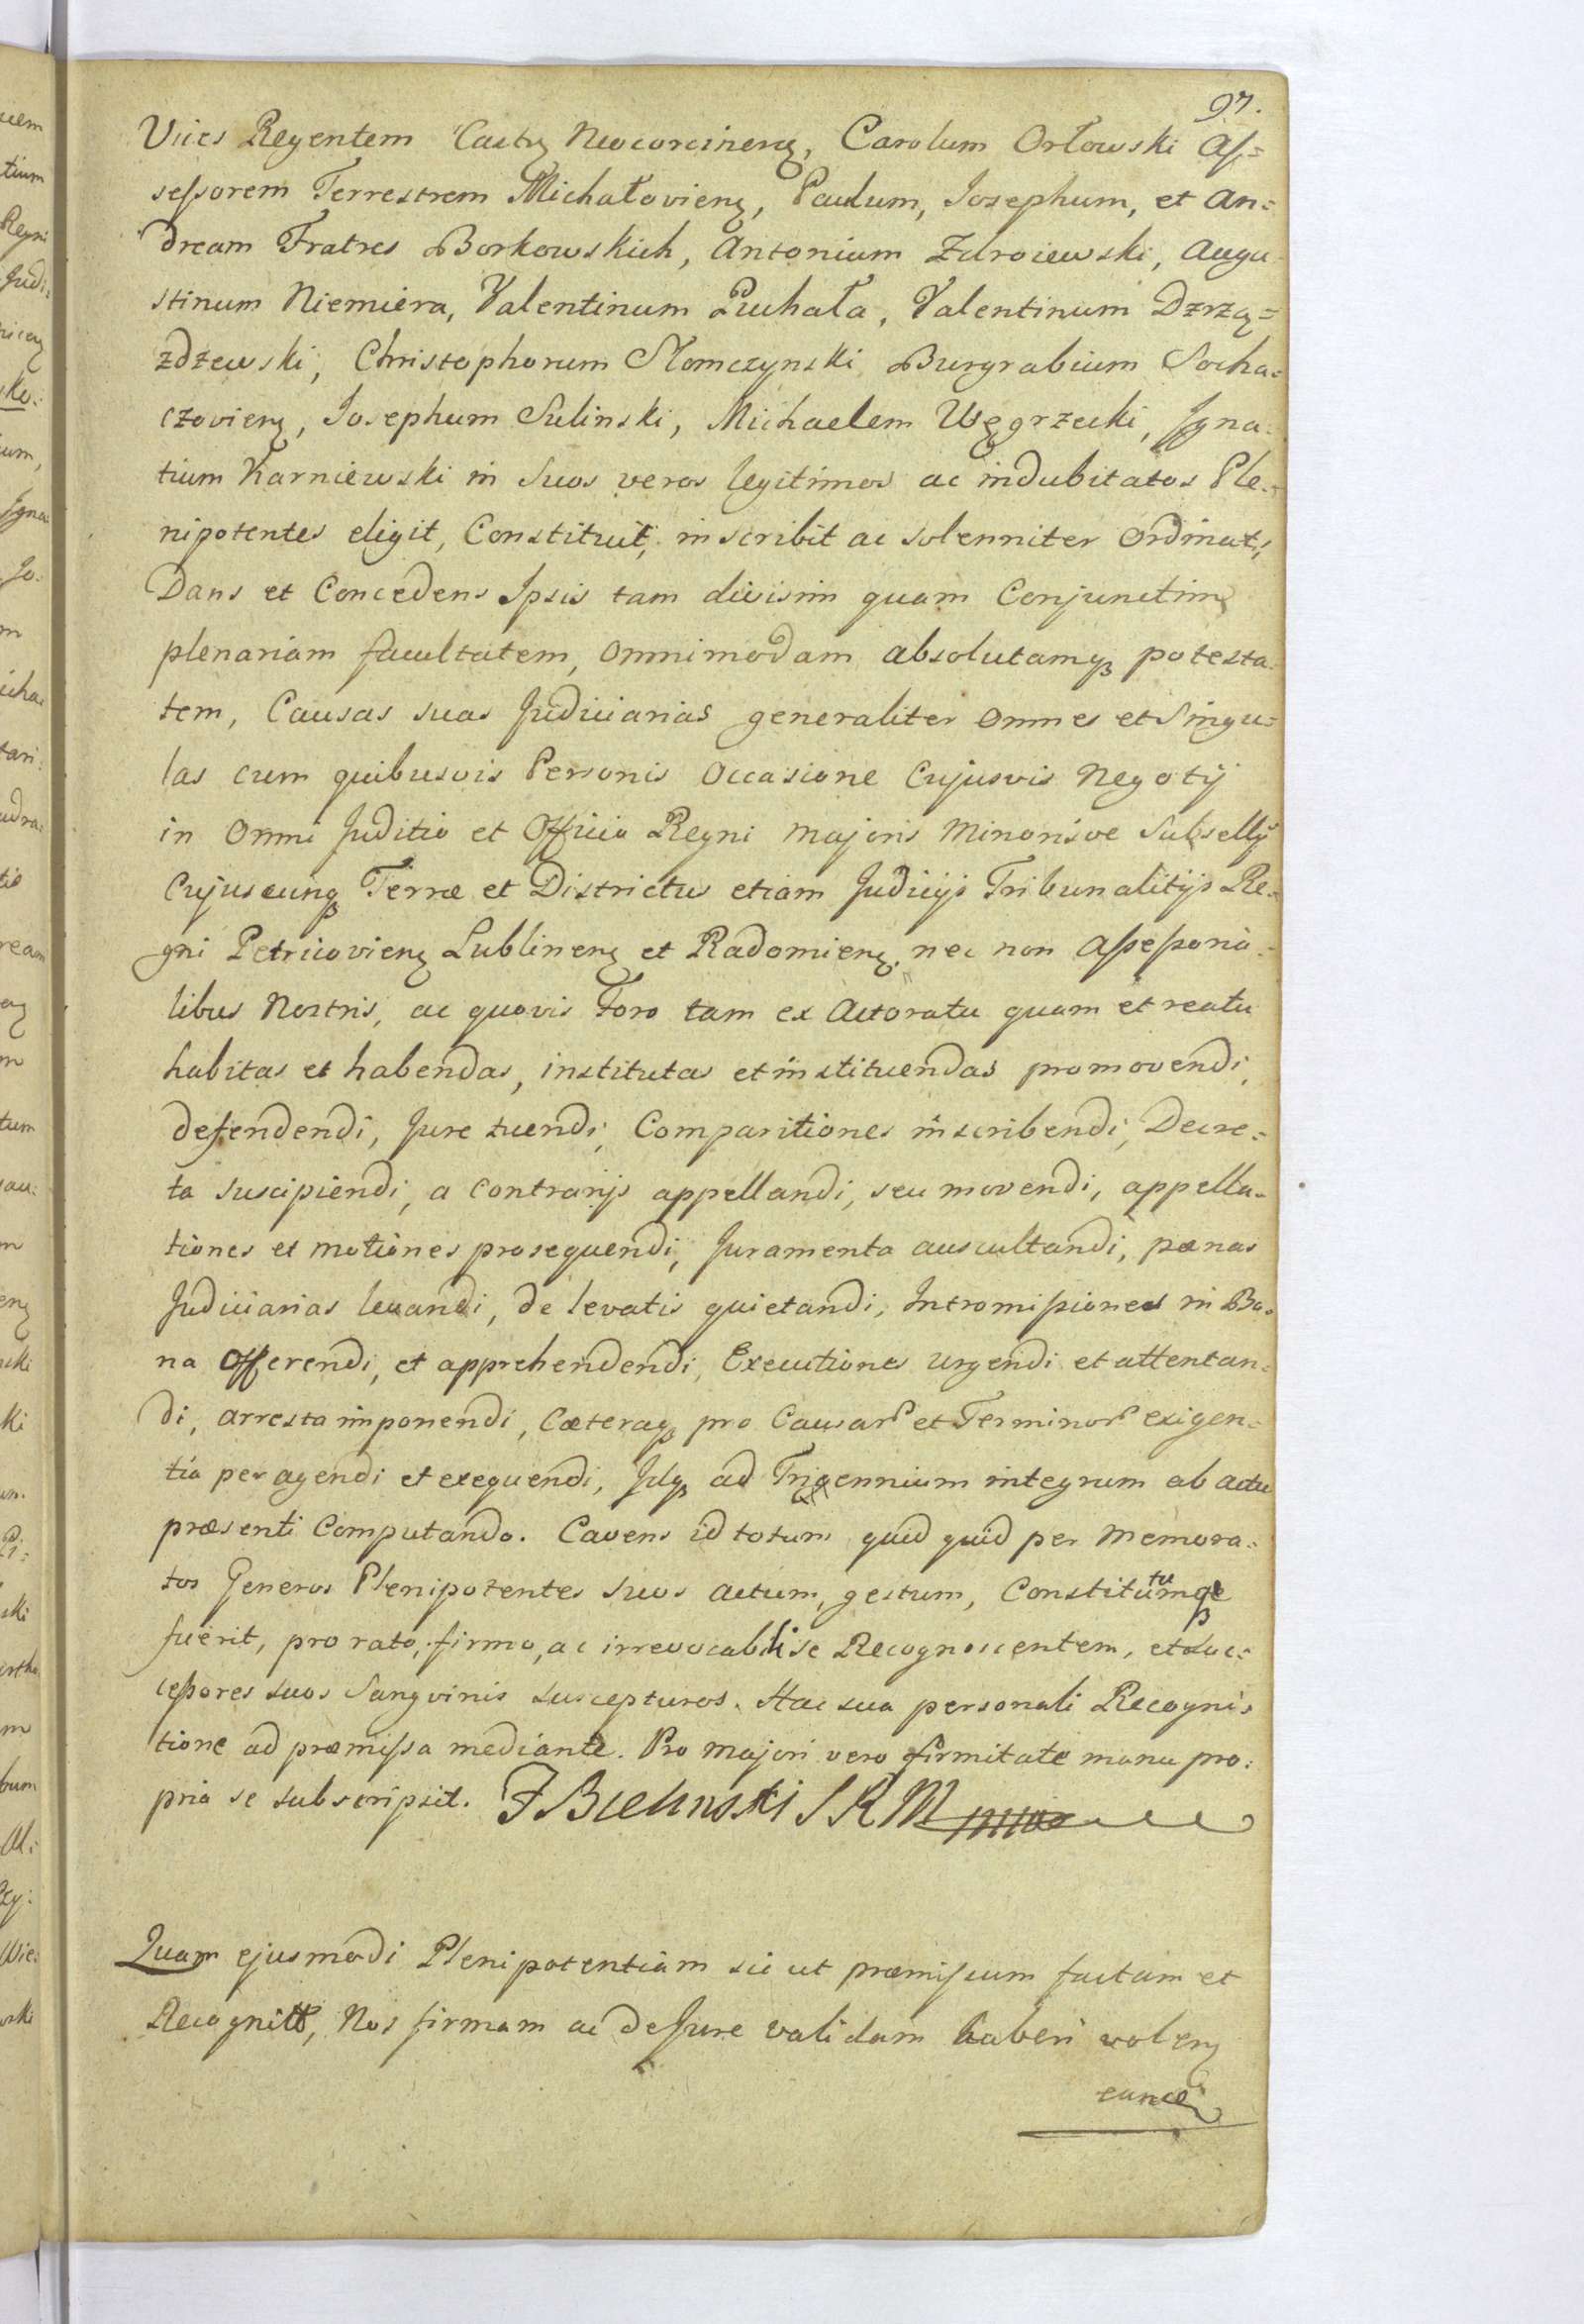 97.
Vices Regentem Castrꝫ Neocorcinenꝫ, Carolum Orłowski As=
sessorem Terrestrem Michałovienꝫ, Paulum, Josephum, et An=
dream Fratres Borkowskich, Antonium Zdroiewski, Augu
stinum Niemiera, Valentinum Puchała, Valentinum Dzrzą=
zdżewski, Christophorum Słomczynski Burgrabium Socha=
czovienꝫ, Josephum Sulinski, Michaelem Węgrzecki, Igna=
tium Karniewski in Suos veros legitimos ac indubitatos Ple=
nipotentes eligit, Constituit, inscribit ac solenniter Ordinat,
Dans et Concedens Ipsis tam divisim quam Conjunctim
plenariam facultatem, omnimodam absolutamqꝫ potesta=
tem, Causas suas Judiciarias generaliter omnes et Singu=
las cum quibusvis Personis Occasione Cujusvis Negotij
in Omni Juditio et Officio Regni Majoris Minorisve Subsellij
Cujuscunqꝫ Terræ et Districtus etiam Judicijs Tribunalitijs Re=
gni Petricovienꝫ Lublinenꝫ et Radomienꝫ, nec non Assessoria=
libus Nostris, ac quovis Foro tam ex Actoratu quam et reatu
habitas et habendas, institutas et instituendas promovendi,
defendendi, Jure tuendi, Comparitiones inscribendi, Decre=
ta suscipiendi, a Contrarijs appellandi, seu movendi, appella=
tiones et motiones prosequendi, Juramenta auscultandi, pænas
Judiciarias levandi, de levatis quietandi, Intromissiones in Bo=
na Offerendi, et apprehendendi, Executiones urgendi et attentan=
di, arresta imponendi, Cæteraqꝫ pro Causarꝫ et Terminorꝫ exigen=
tia peragendi et exequendi, Idqꝫ ad Trigennium integrum ab actu
præsenti Computando. Cavens id totum quid quid per Memora=
tos Generos Plenipotentes suos actum, gestum, Constitutumqꝫ
fuerit, pro rato, firmo, ac irrevocabili se Recognoscentem, et Suc=
cessores suos Sangvinis suscepturos. Hac sua personali Recogni=
tione ad præmissa mediante. Pro Majori vero firmitate manu pro=
pria se subscripsit. F Bielinski S K M mpria
Quam ejusmodi Plenipotentiam sic ut præmissum factam et
Recognitt, Nos firmam ac de Jure validam haberi volenꝫ